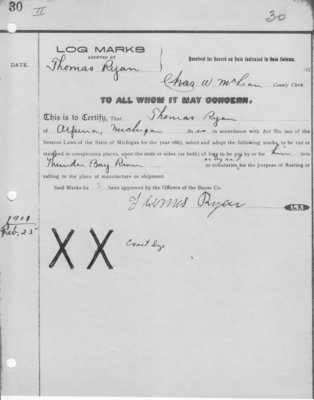 30 II
30
LOG MARKS
ADOPTED BY
Thomas Ryan
Received for Record on Date Indicated in Date Column.
DATE.
Chas. W. McLean County Clerk.
TO ALL WHOM IT MAY CONCERN.
This is to Certify, That Thomas Ryan
of Alpena, Michigan do es in accordance with Act No. 202 of the
Session Laws of the State of Michigan for the year 1867, select and adopt the following marks to be cut or
stamped in conspicuous places, upon the ends or sides (or both) of logs to be put by or for him into
Thunder Bay River or tributaries for the purpose of floating or
rafting to the place of manufacture or shipment.
Said Marks been approved by the Officers of the Boom Co.
Thomas Ryan
1908
Feb. 25
X X
Exact Size